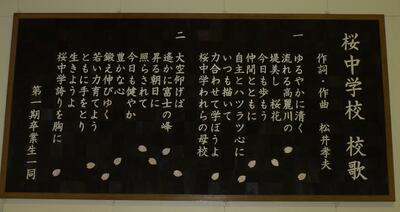 桜中学校 校歌
作詞・作曲 松井孝夫
一
ゆるやかに清く
流れる高麗川の
堤美しい 桜花
今日も歩もう
仲間とともに
自主とハツラツ心に
いつも描いて
力合わせて学ぼうよ
桜中学われらの母校
二
大空仰げば
遥かに富士の峰
昇る朝日に
照らされて
今日も健やか
豊かな心
鍛え伸びゆく
若い力育てよう
ともに手をとり
生きようよ
桜中学誇りを胸に
第一期卒業生一同